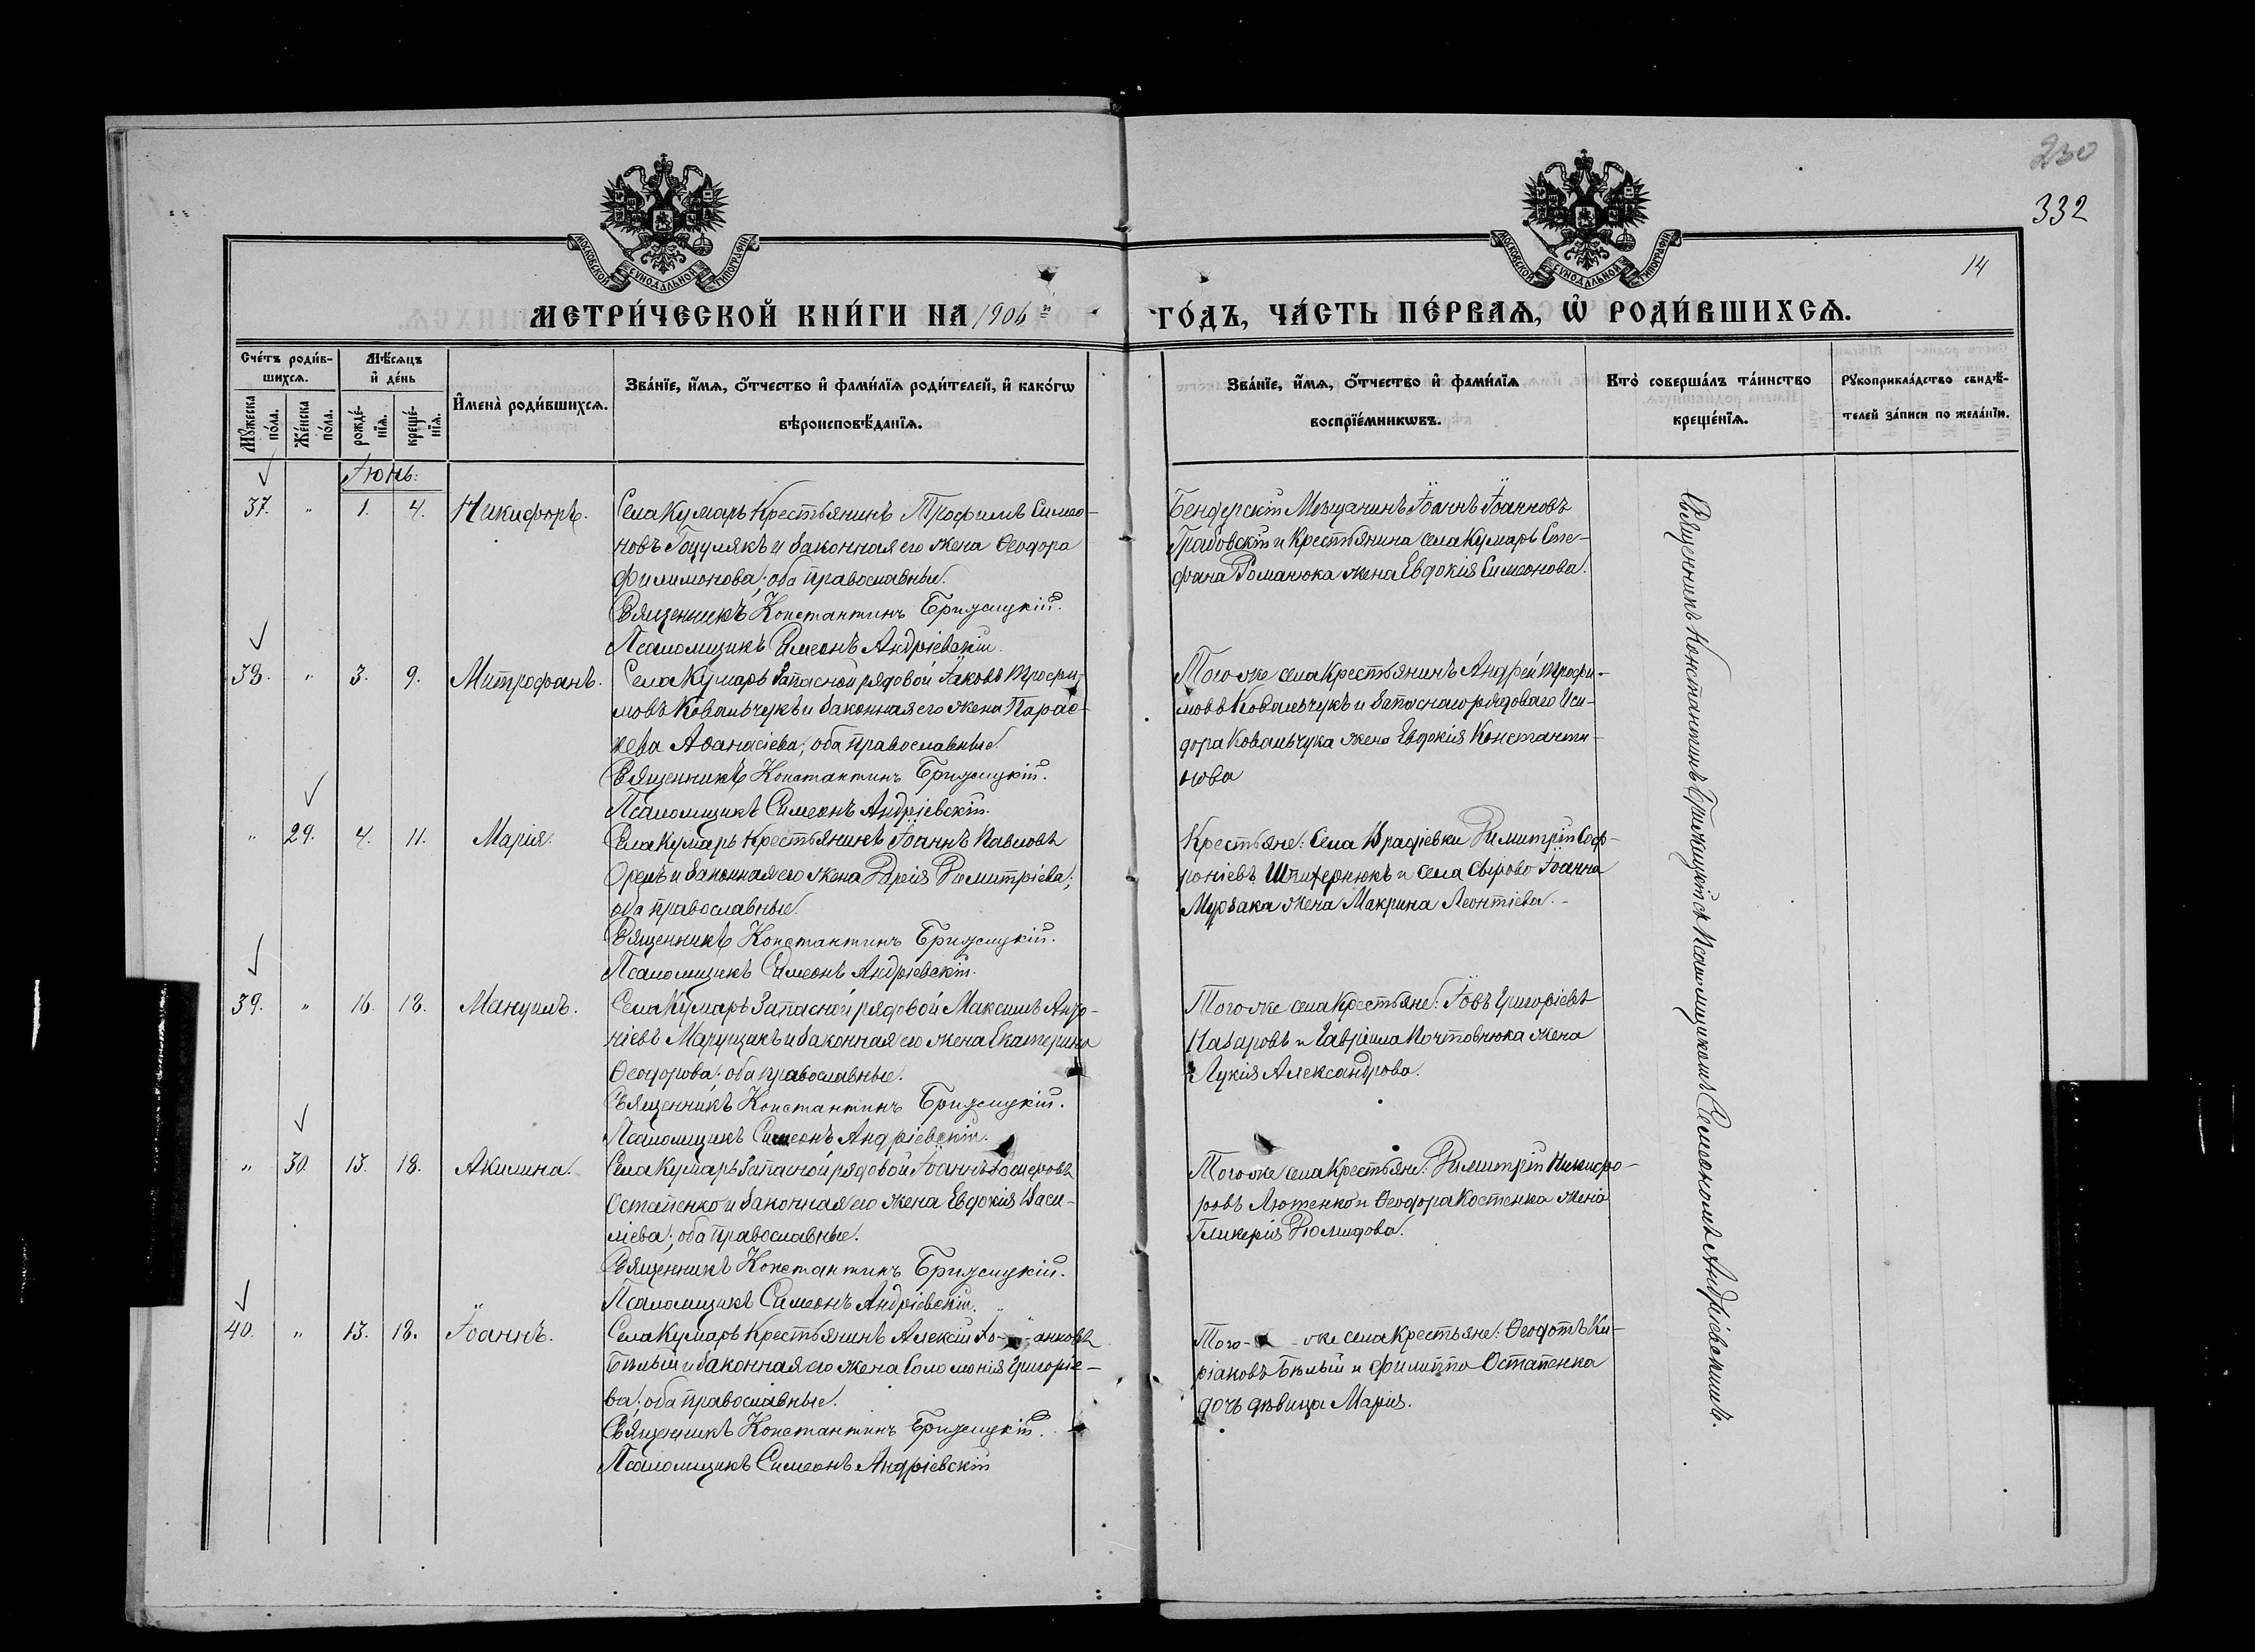 230
332
14
МОСКОВСКОЙ СУНОДАЛЬНОЙ ТИПОГРАФІИ
МОСКОВСКОЙ СУНОДАЛЬНОЙ ТИПОГРАФІИ
МЕТРИ́ЧЕСКОЙ КНИ́ГИ НА 1906й ГО́ДЪ, ЧА́СТЬ ПЕ́РВАѦ, Ѿ РОДИ́ВШИХСѦ.
Сче́тъ роди́вшихсѧ.
Мꙋ́жеска по́ла.
Же́нска по́ла.
Мѣ́сѧцъ и҆ де́нь
рожде́нїѧ.
креще́нїѧ.
И҆мена̀ роди́вшихсѧ.
Зва́нїе, и҆́мѧ, ѻ҆́тчество и҆ фами́лїѧ роди́телей, и҆ како́гѡ
вѣроисповѣ́данїѧ.
Зва́нїе, и҆́мѧ, ѻ҆́тчество и҆ фами́лїѧ
воспрїе́мникѡвъ.
Кто̀ соверша́лъ та́инство
креще́нїѧ.
Рꙋкоприкла́дство свидѣ́-
телей за́писи по жела́нїю.
Іюнь:
37. " 1. 4. Никифоръ.
Села Кумарь Крестьянинъ Трофимъ Симео-
новъ Гоцулякъ и законная его жена Ѳеодора
Филимонова; оба православные.
Священникъ Константинъ Брижицкій.
Псаломщикъ Симеонъ Андріевскій.
Бендерскій Мѣщанинъ Іоаннъ Іоанновъ
Грабовскій и Крестьянина села Кумарь Сте-
фана Романюка жена Евдокія Симеонова.
38. " 3. 9. Митрофанъ.
Села Кумарь Запасной рядовой Іаковъ Трофи-
мовъ Ковальчукъ и законная его жена Парас-
кева Аѳанасіева; оба православные.
Священникъ Константинъ Брижицкій.
Псаломщикъ Симеонъ Андріевскій.
Того же села Крестьянинъ Андрей Трофи-
мовъ Ковальчукъ и запаснаго рядоваго Иси-
дора Ковальчука жена Евдокія Константи-
нова
" 29. 4. 11. Марія.
Села Кумарь Крестьянинъ Іоаннъ Павловъ
Орелъ и законная его жена Дарія Димитріева;
оба православные.
Священникъ Константинъ Брижицкій.
Псаломщикъ Симеонъ Андріевскій.
Крестьяне: Села Врадіевки Димитрій Соф-
роніевъ и села Сырово Іоанна
Мурзака жена Макрина Леонтіева.-
39. " 16. 18. Мануилъ.
Села Кумарь Запасной рядовой Максимъ Анто-
ніевъ Марущакъ и законная его жена Екатерина
Ѳеодорова; оба православные.
Священникъ Константинъ Брижицкій.
Псаломщикъ Симеонъ Андріевскій.
Того же села Крестьяне: Іовъ Григоріевъ
Назаровъ и Гавріила Почтовнюка жена
Лукія Александрова.
" 30. 13. 18. Акилина.
Села Кумарь Запасной рядовой Іоаннъ
Остапенко и законная его жена Евдокія Васи-
ліева; оба православные.
Священникъ Константинъ Брижицкій.
Псаломщикъ Симеонъ Андріевскій.
Того же села Крестьяне: Димитрій Никифо-
ровъ Лютенко и Ѳеодора Костенка жена
Гликерія Діомидова.
40. " 13. 18. Іоаннъ.
Села Кумарь Крестьянинъ Алексій Іо- -анновъ
Бѣлый и законная его жена Соломонія Григоріе-
ва; оба православные.
Священникъ Константинъ Брижицкій.
Псаломщикъ Симеонъ Андріевскій
Того- -же села Крестьяне: Ѳеодотъ Ки-
ріаковъ Бѣлый и Филиппа Остапенка
дочь дѣвица Марія.
Священникъ Константинъ Брижицкій съ Псаломщикомъ Симеономъ Андріевскимъ.